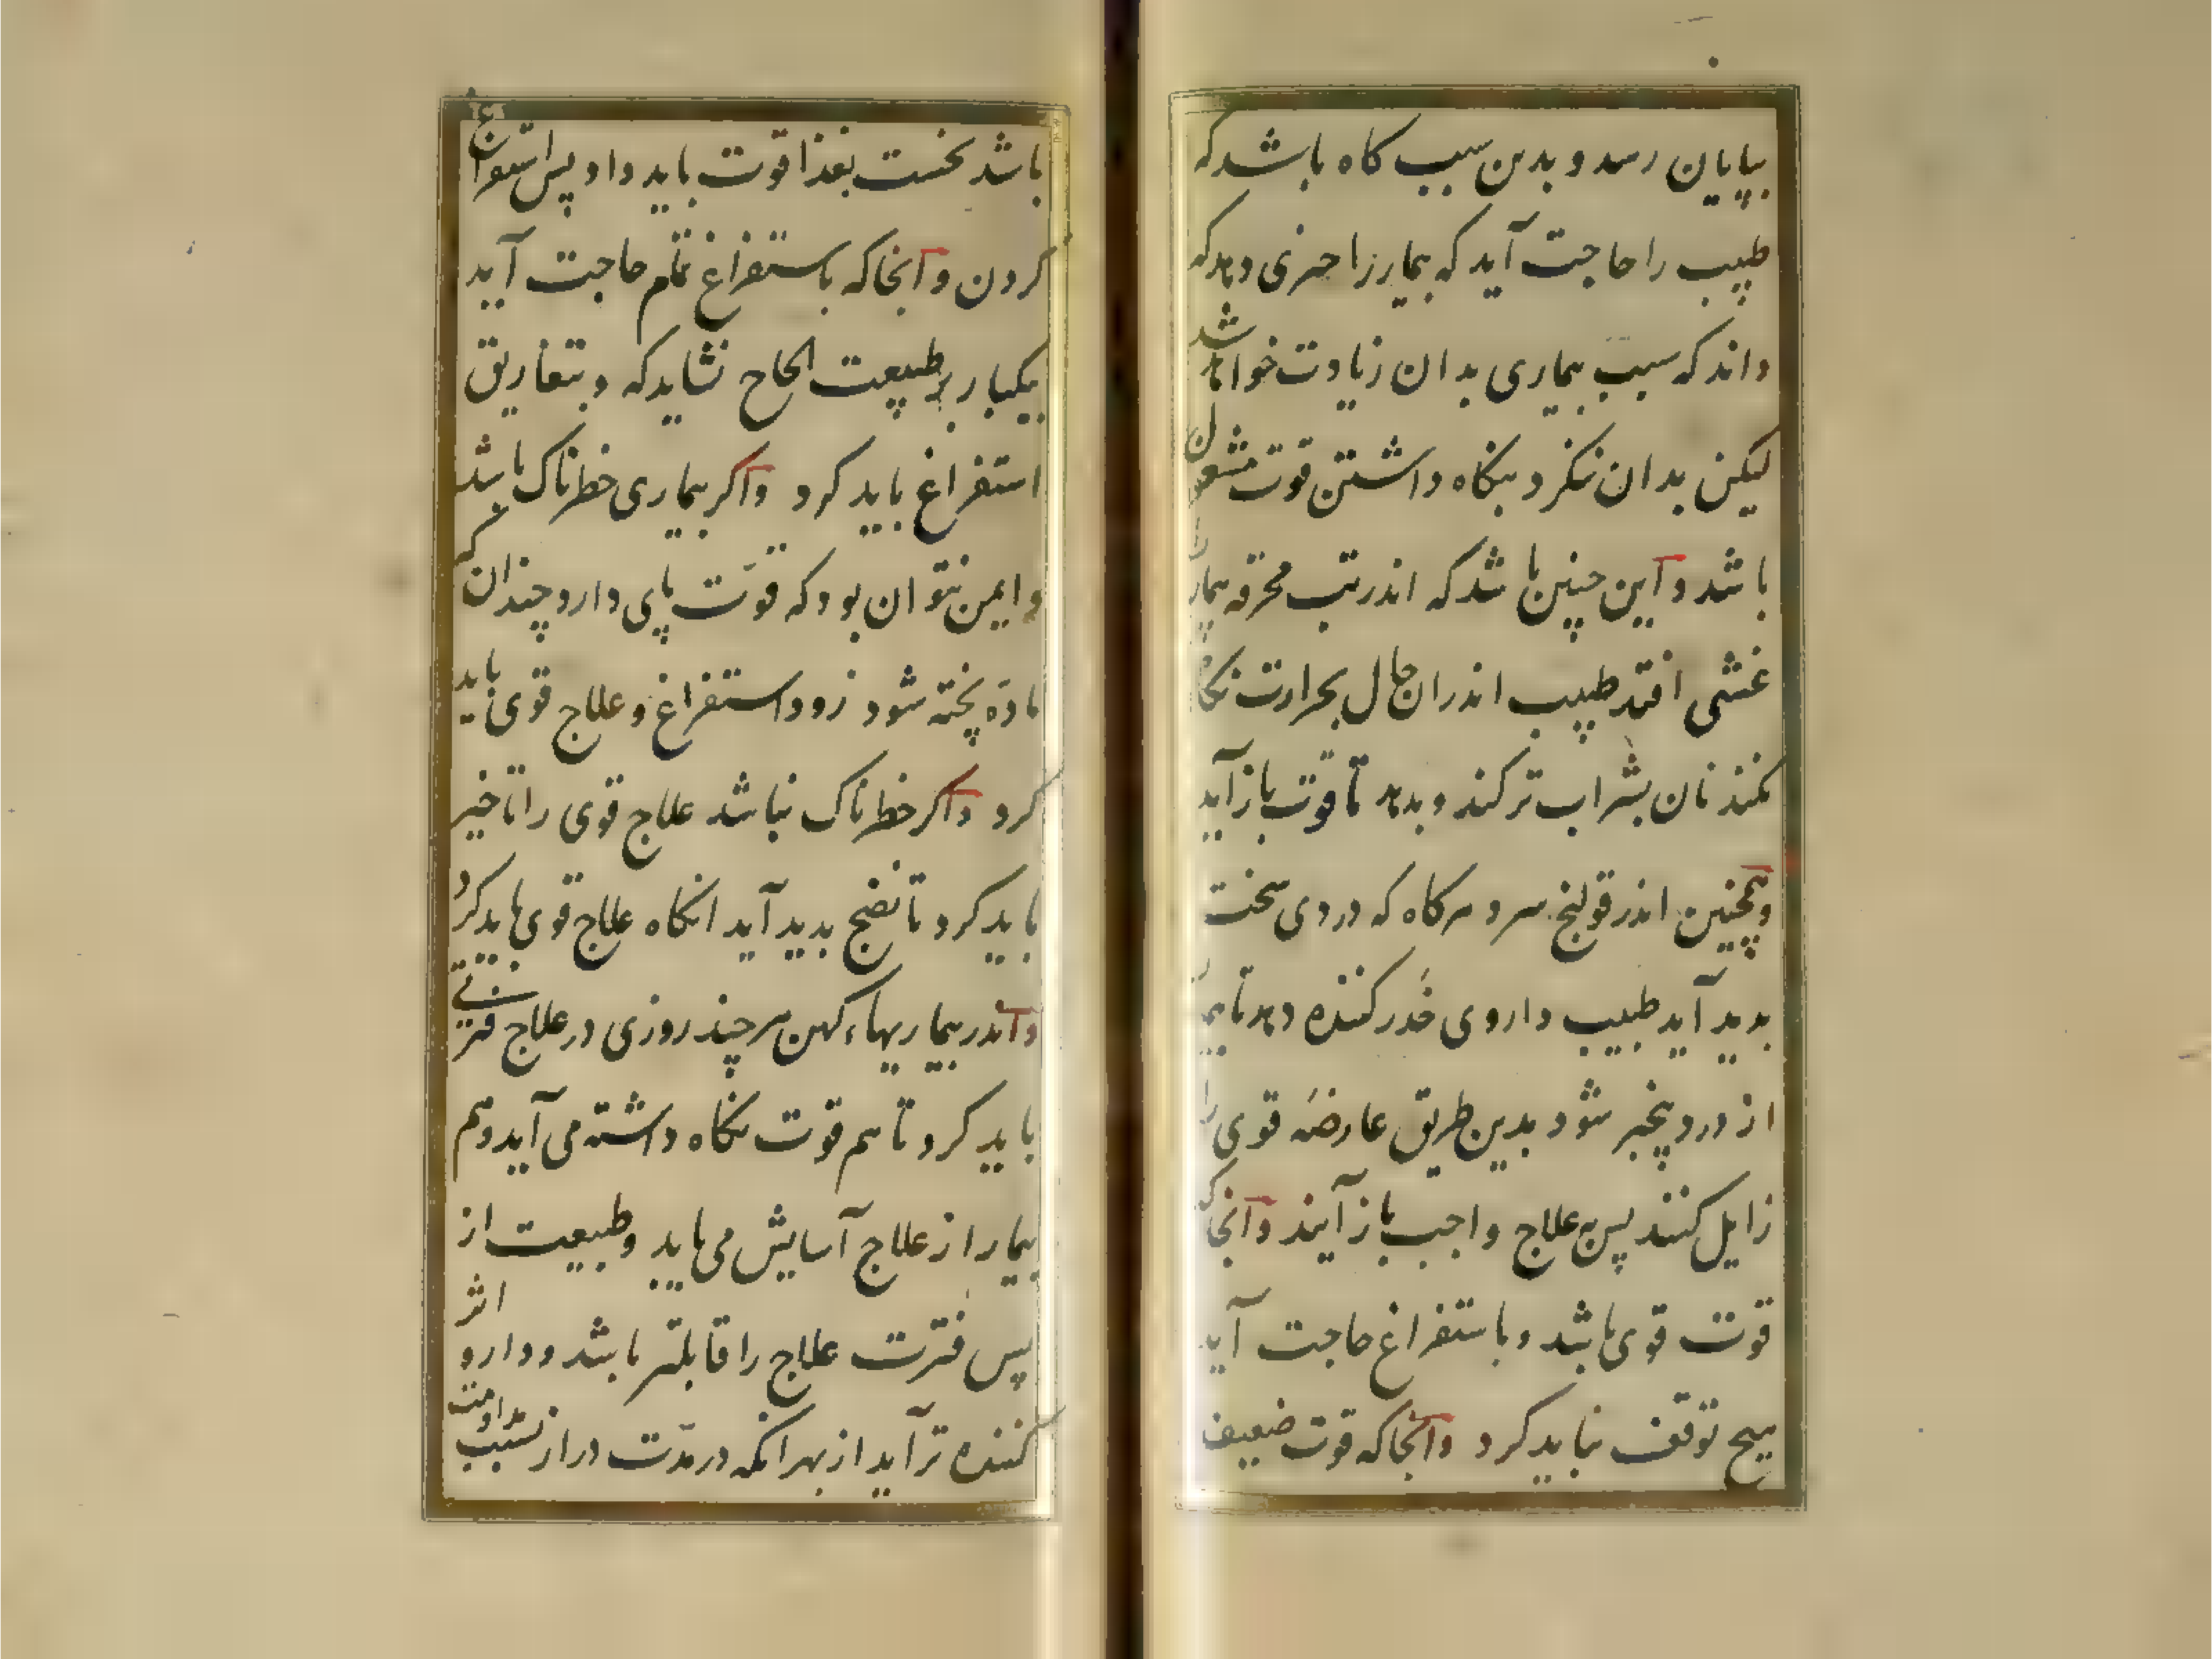 بپایان رسد و بدین سبب کاه باشد که
طبیب را حاجت آید که بیمار را چیزی دهد که
داند که سبب بیماری بدان زیادت خواهد شد
لیکن بدان ننکرد بنکاه داشتن قوت مشغول
باشد و این چنین باشد که اندر تب محرقه بیمار را
غشی افتد طبیب اندران حال بحرارت نکاه
نکند نان بشراب تر کند و بدهد تا قوت باز آید
و همچنین اندر قولنج سرد هر کاه که دردی سخت
بدید آید طبیب داروی خَدَر کننده دهد تا بیمار
از درد بیخبر شود بدین طریق عارضهٔ قوی را
زایل کنند پس بعلاج واجب باز آیند و آنجا که
قوت قوی باشد و باستفراغ حاجت آید
هیچ توقف نباید کرد و آنجا که قوت ضعیف
باشد نخست بغذا قوت باید داد پس استفراغ
کردن و آنجا که باستفراغ تمام حاجت آید
بیکبار بر طبیعت الحاح نشاید کرد و بتفاریق
استفراغ باید کرد و اکر بیماری خطرناک باشد
و ایمن نتوان بود که قوّت پای دارد چندان که
مادّه پخته شود زود استفراغ و علاج قوی باید
کرد و اکر خطرناک نباشد علاج قوی را تاخیر
باید کرد تا نضج بدید آید انکاه علاج قوی باید کرد
و اندر بیماریهاء کهن هر چند روزی در علاج فترتی
باید کرد تا هم قوت نکاه داشته می آید و هم
بیمار از علاج آسایش می یابد و طبیعت از
پس فترت علاج را قابلتر باشد و دارو اثر
کننده تر آید از بهر انکه در مدّت دراز بسبب مداومت